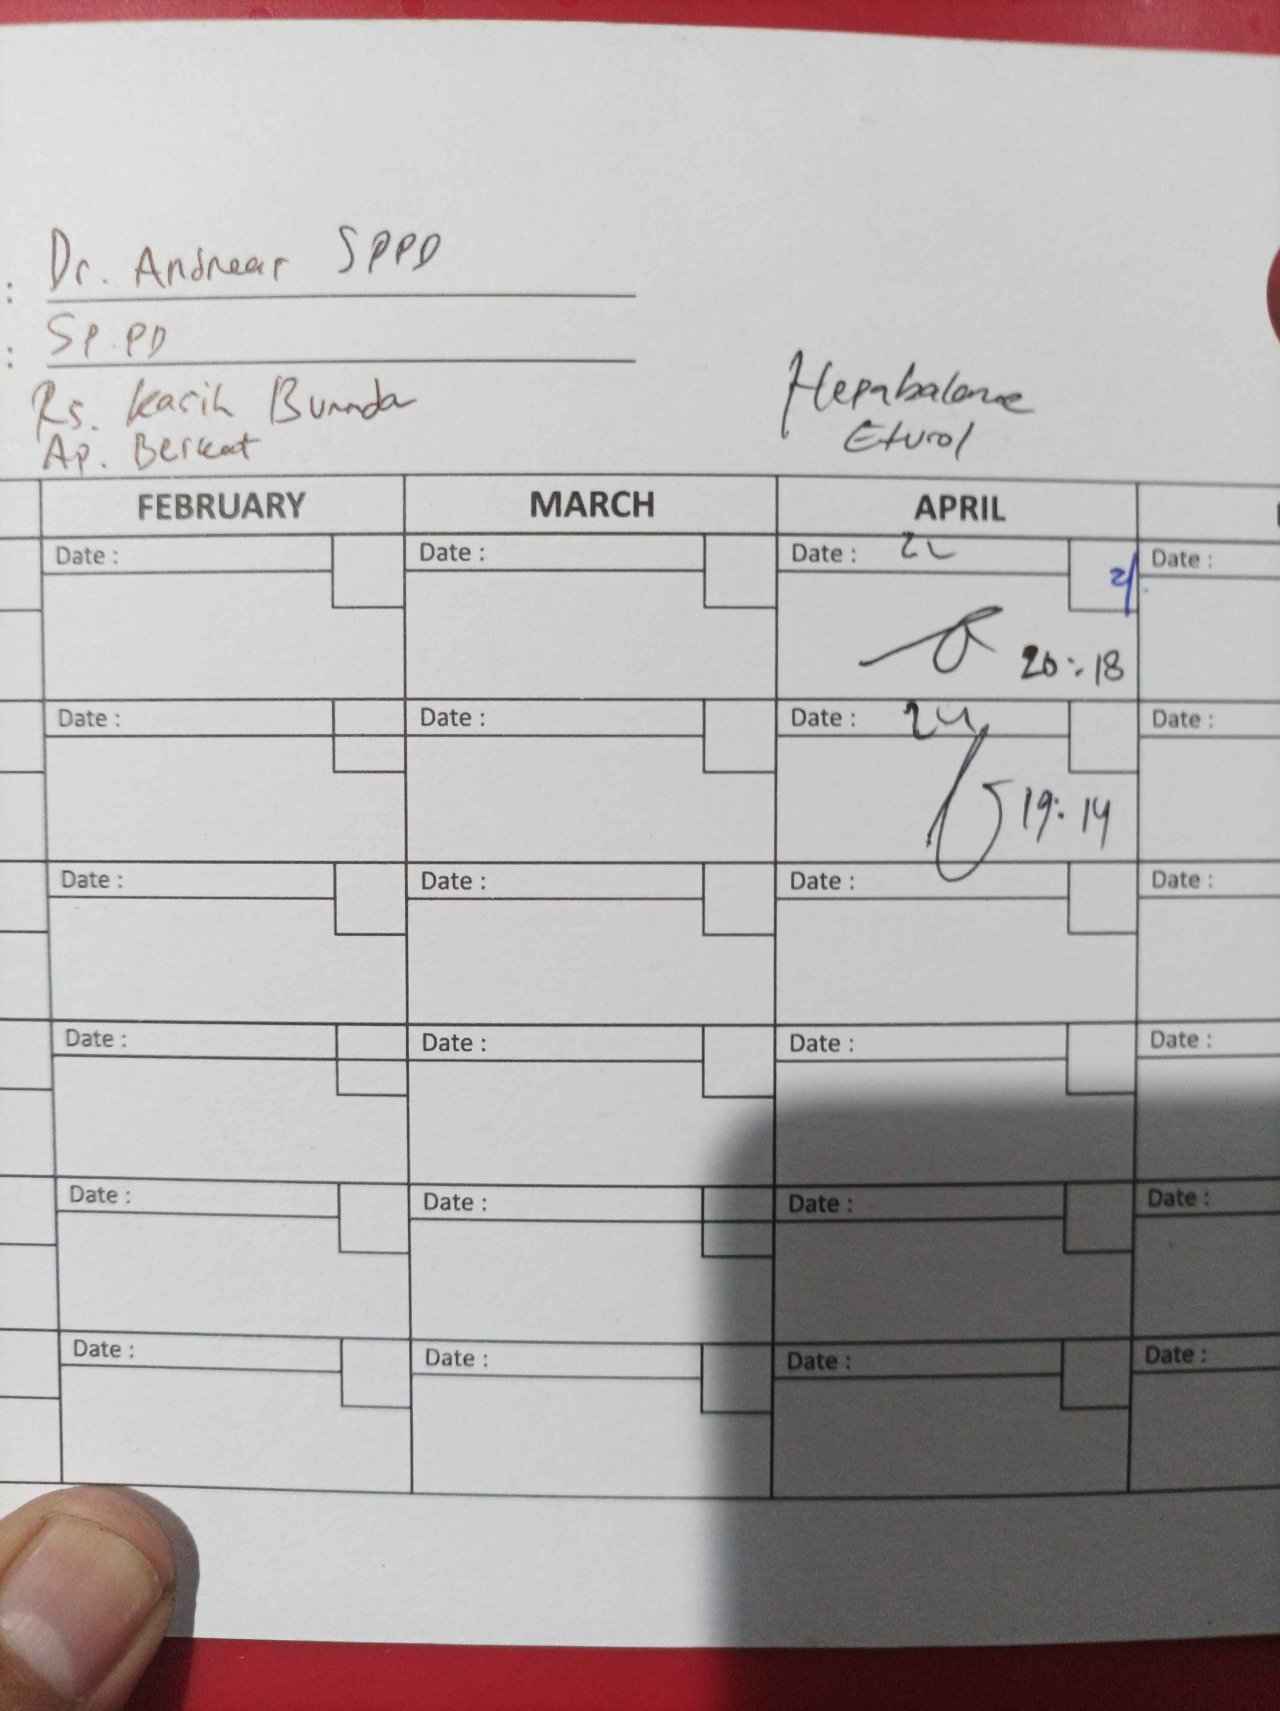 : Dr. Andreas SPPD
: SP.PD
Rs. Kasih Bunnda
Ap. Berkat
Hepabalance
FEBRUARY MARCH APRIL
Date : Date : Date : 22 Date :
20:18
Date : Date : Date : 24 Date :
19:14
Date : Date : Date : Date :
Date : Date : Date : Date :
Date : Date : Date : Date :
Date : Date : Date : Date :